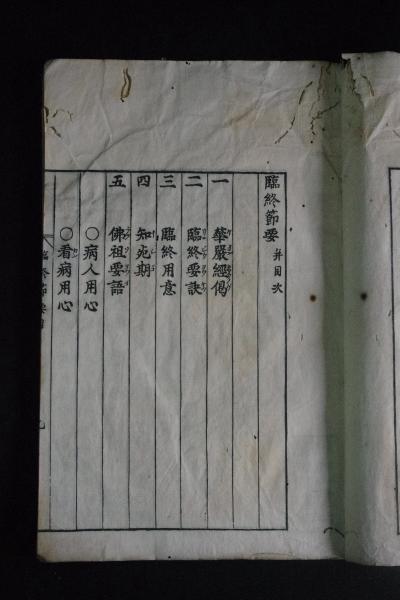 臨終節要 并目次
一 華嚴經偈
二 臨終要訣
三 臨終用意
四 知死期
五 佛祖要語
○病人用心
○看病用心
臨終節要